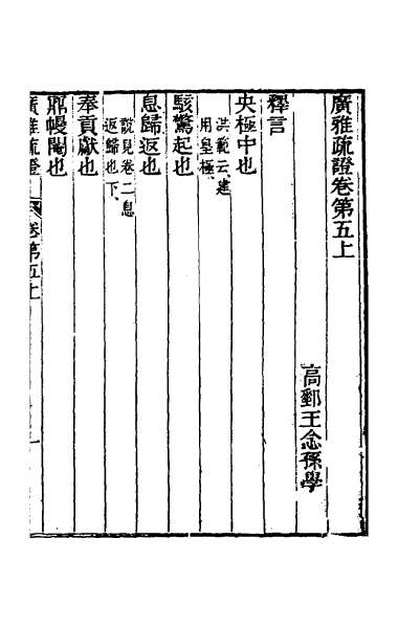 廣雅疏證卷第五上
高郵王念孫學
釋言
央極中也
洪範云、建
用皇極、
駭驚起也
息歸返也
說見卷二、息
返歸也下、
奉貢獻也
幔闇也
廣雅疏證 卷第五上